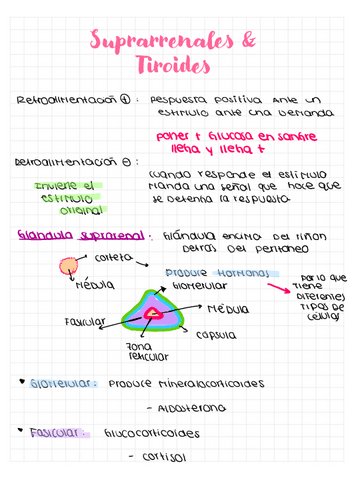 Suprarrenales &
Tiroides
Retroalimentación ⊕ : Respuesta positiva ante un
estimulo ante una demanda
poner + glucosa en sangre
llena y llena +
Retroalimentación ⊖ : cuando responde el estimulo
manda una señal que hace que
se detenga la respuesta
Invierte el
estimulo
original
Glándula suprarrenal : Glándula encima del riñon
detrás del peritoneo
corteza
Produce Hormonas
Por lo que
tiene
diferentes
tipos de
células
Médula
Glomerular
Médula
Fascicular
cápsula
zona
reticular
• Glomerular: Produce mineralocorticoides
- Aldosterona
• Fasicular: Glucocorticoides
- cortisol